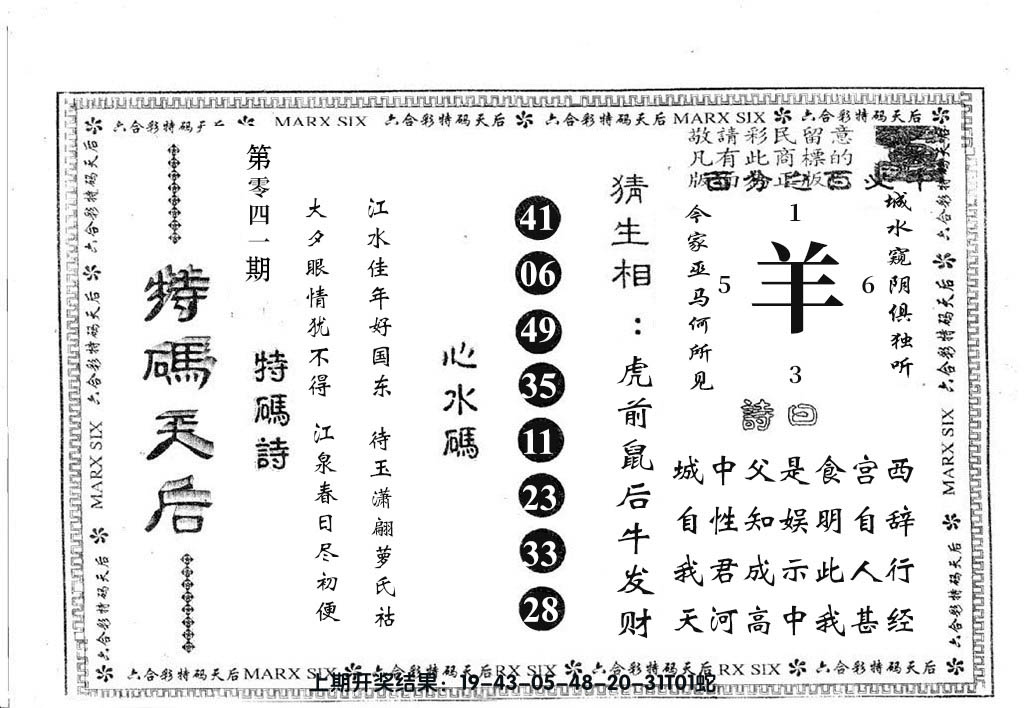 六合彩特码天后 MARX SIX 六合彩特码天后 六合彩特码天后 MARX SIX 六合彩特码天后
敬請彩民留意
凡有此商標的
特碼天后
第零四一期
特碼詩
大夕眼情犹不得 江泉春日尽初便
江水佳年好国东 待玉潇翩萝氏祜
心水碼
41
06
49
35
11
23
33
28
猜生相：虎前鼠后牛发财
今家巫马何所见
1
5
羊
6
3
城水窥阴俱独听
詩曰
城中父是食宫西
自性知娱明自辞
我君成示此人行
天河高中我甚经
六合彩特码天后 MARX SIX 六合彩特码天后
六合彩特码天后 MARX SIX 六合彩特码天后
六合彩特码天后 MARX SIX 六合彩特码天后 RX SIX 六合彩特码天后 RX SIX 六合彩特码天后
上期开奖结果：19-43-05-48-20-31T01蛇